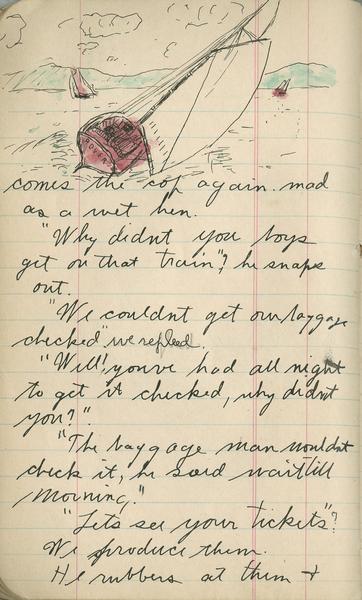 comes the cop again. mad
as a wet hen.
"Why didnt you boys
get on that train"? he snaps
out.
"We couldnt get our baggage
checked" we replied.
"Well! youve had all night
to get it checked, why didnt
you?".
"The baggage man wouldnt
check it, he said wait till
morning."
"Lets see your tickets"?
We produce them.
He rubbers at them +